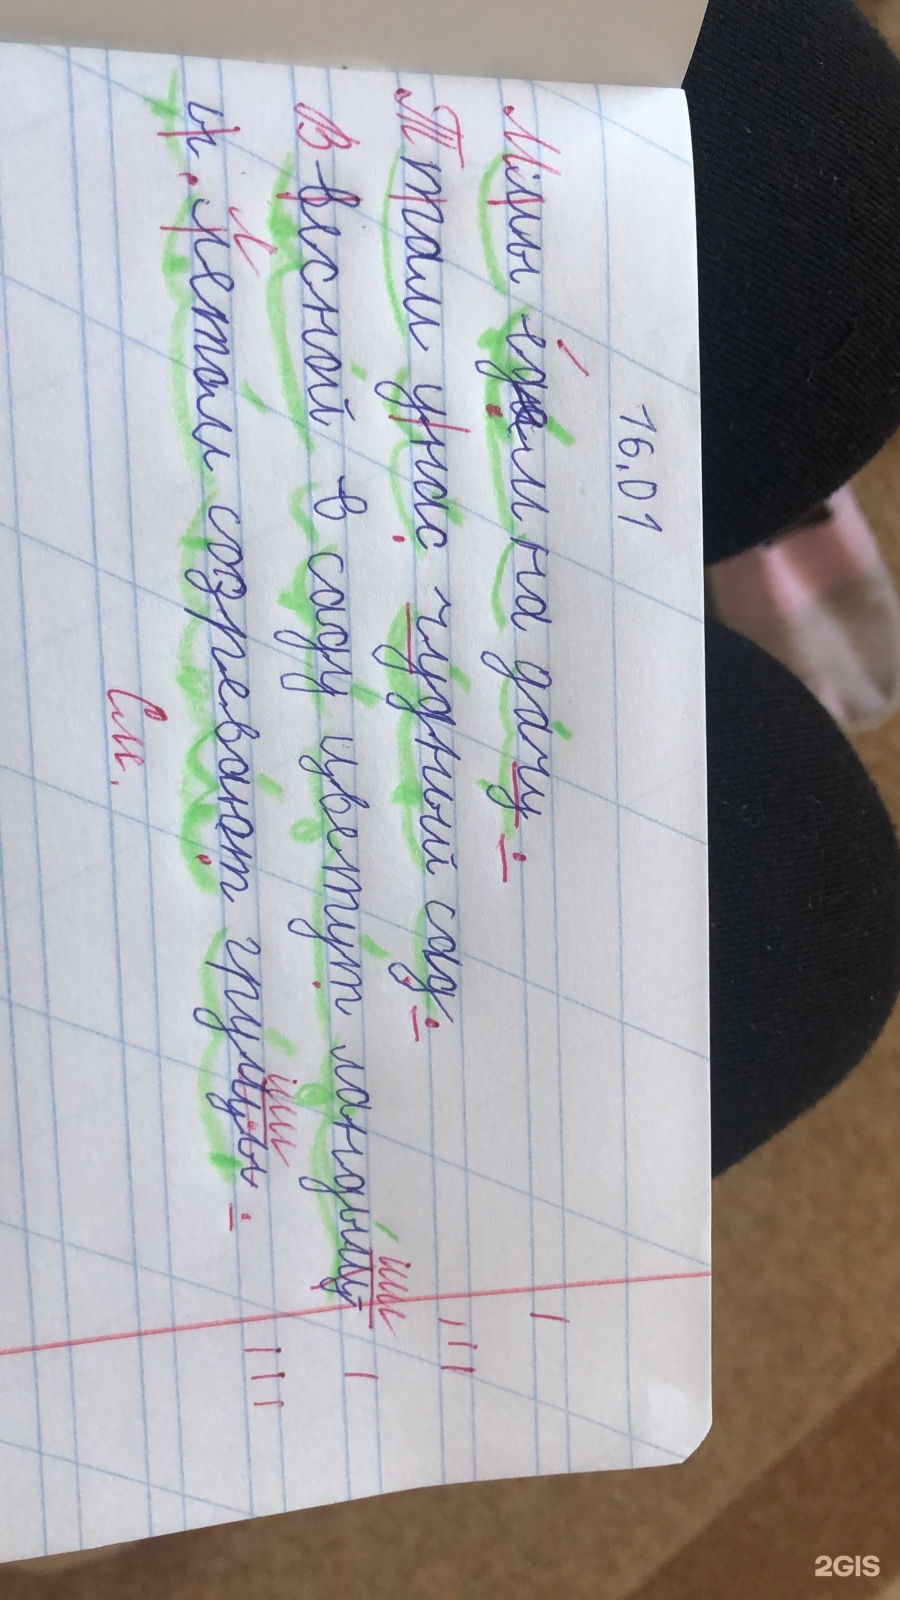 16.01
Ммы едели на дачу.
Ттам унас чудный сад.
Ввсной в саду цветут ландыщ
ши
н. летам созревают грущы.
Л
ши
См.
2GIS